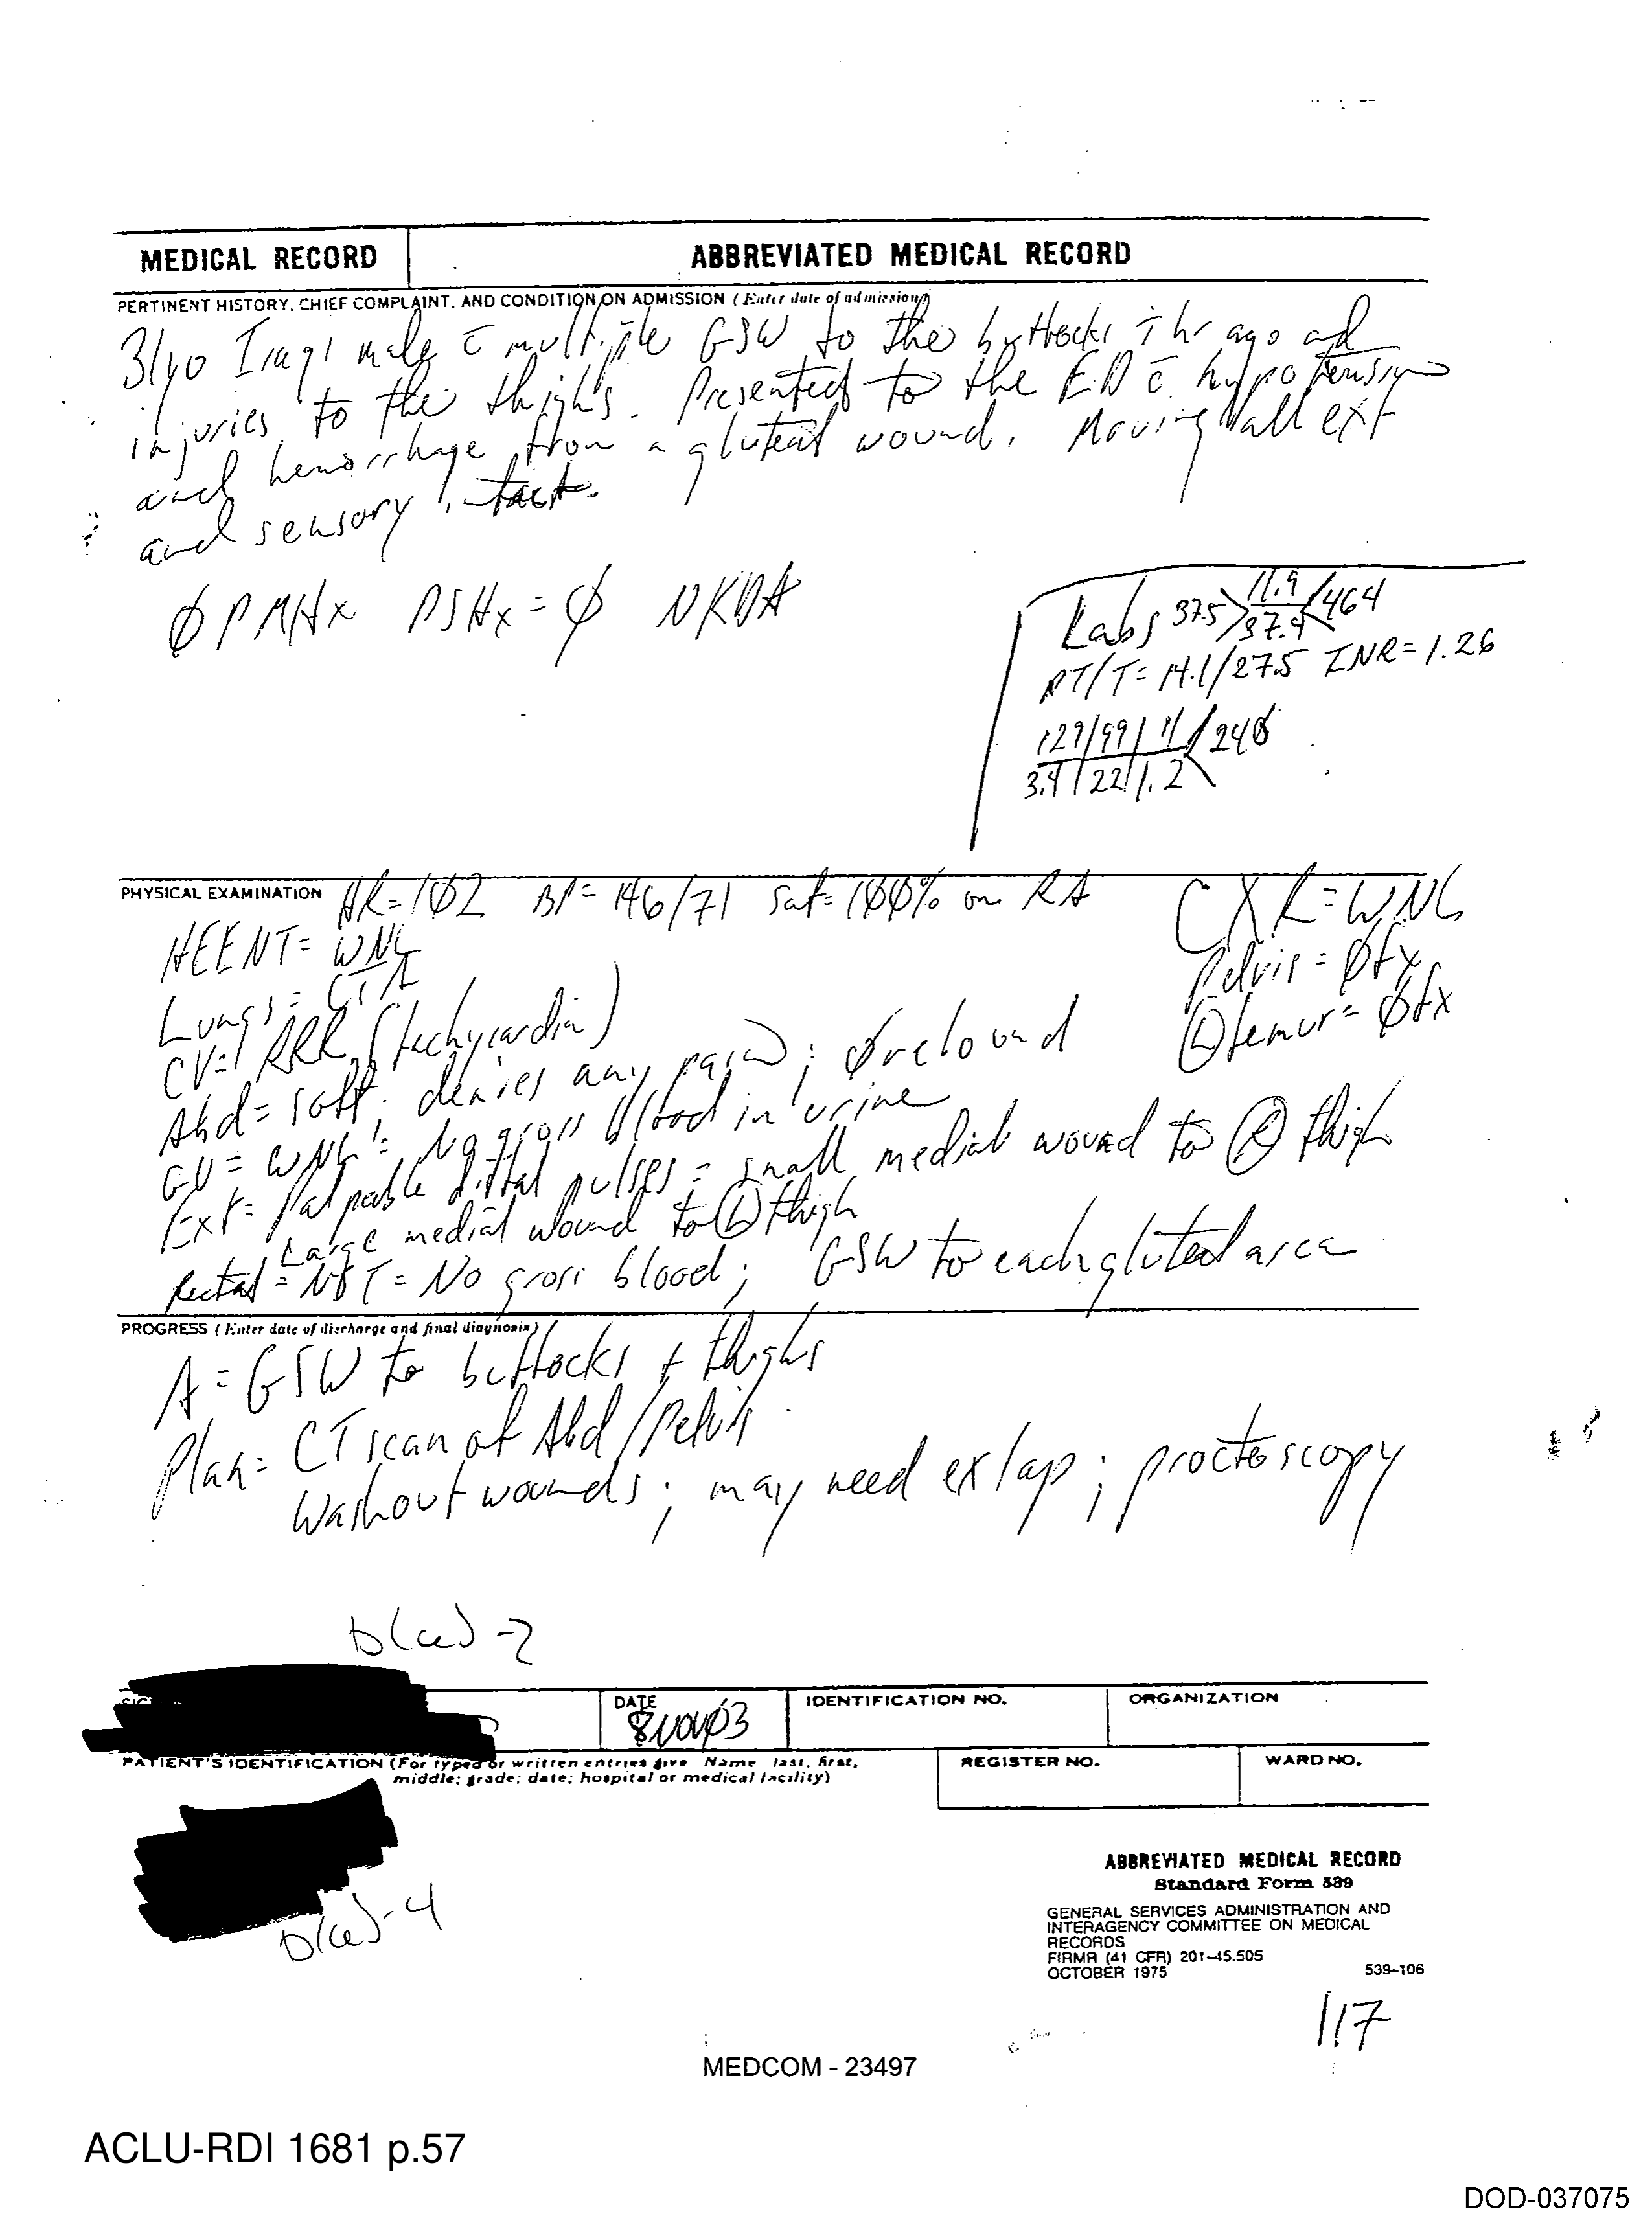 MEDICAL RECORD
ABBREVIATED MEDICAL RECORD
PERTINENT HISTORY, CHIEF COMPLAINT, AND CONDITION ON ADMISSION (Enter date of admission)
31yo Iraqi male c̄ multiple GSW to the buttocks 1 hr ago and
injuries to the thighs. Presented to the ED c̄ hypotension
and hemorrhage from a gluteal wound. Moving all ext
and sensory intact.
∅ PMHx PSHx = ∅ NKDA
Labs 37.5 11.9 / 37.9 464
PT/T = 14.1/27.5 INR = 1.26
129/99/11/240
3.9/22/1.2
PHYSICAL EXAMINATION HR = 102 BP = 146/71 Sat = 100% on RA
CXR = WNL
HEENT = WNL
Pelvis = ∅ fx
Lungs = CTA
Ⓛ femur = ∅ fx
CV = RRR (tachycardia)
Abd = soft; denies any pain; ∅ rebound
GU = WNL; No gross blood in urine
Ext = Palpable distal pulses = small medial wound to Ⓡ thigh
Large medial wound to Ⓛ thigh
Rectal = = No gross blood; GSW to each gluteal area
PROGRESS (Enter date of discharge and final diagnosis)
A = GSW to buttocks + thighs
Plan = CT scan of Abd/Pelvis
Washout wounds; may need ex lap; proctoscopy
b(6)-2
DATE
8 NOV 03
IDENTIFICATION NO.
ORGANIZATION
PATIENT'S IDENTIFICATION (For typed or written entries give Name last, first,
middle; grade; date; hospital or medical facility)
REGISTER NO.
WARD NO.
b(6)-4
ABBREVIATED MEDICAL RECORD
Standard Form 539
GENERAL SERVICES ADMINISTRATION AND
INTERAGENCY COMMITTEE ON MEDICAL
RECORDS
FIRMR (41 CFR) 201-45.505
OCTOBER 1975
539-106
117
MEDCOM - 23497
ACLU-RDI 1681 p.57
DOD-037075